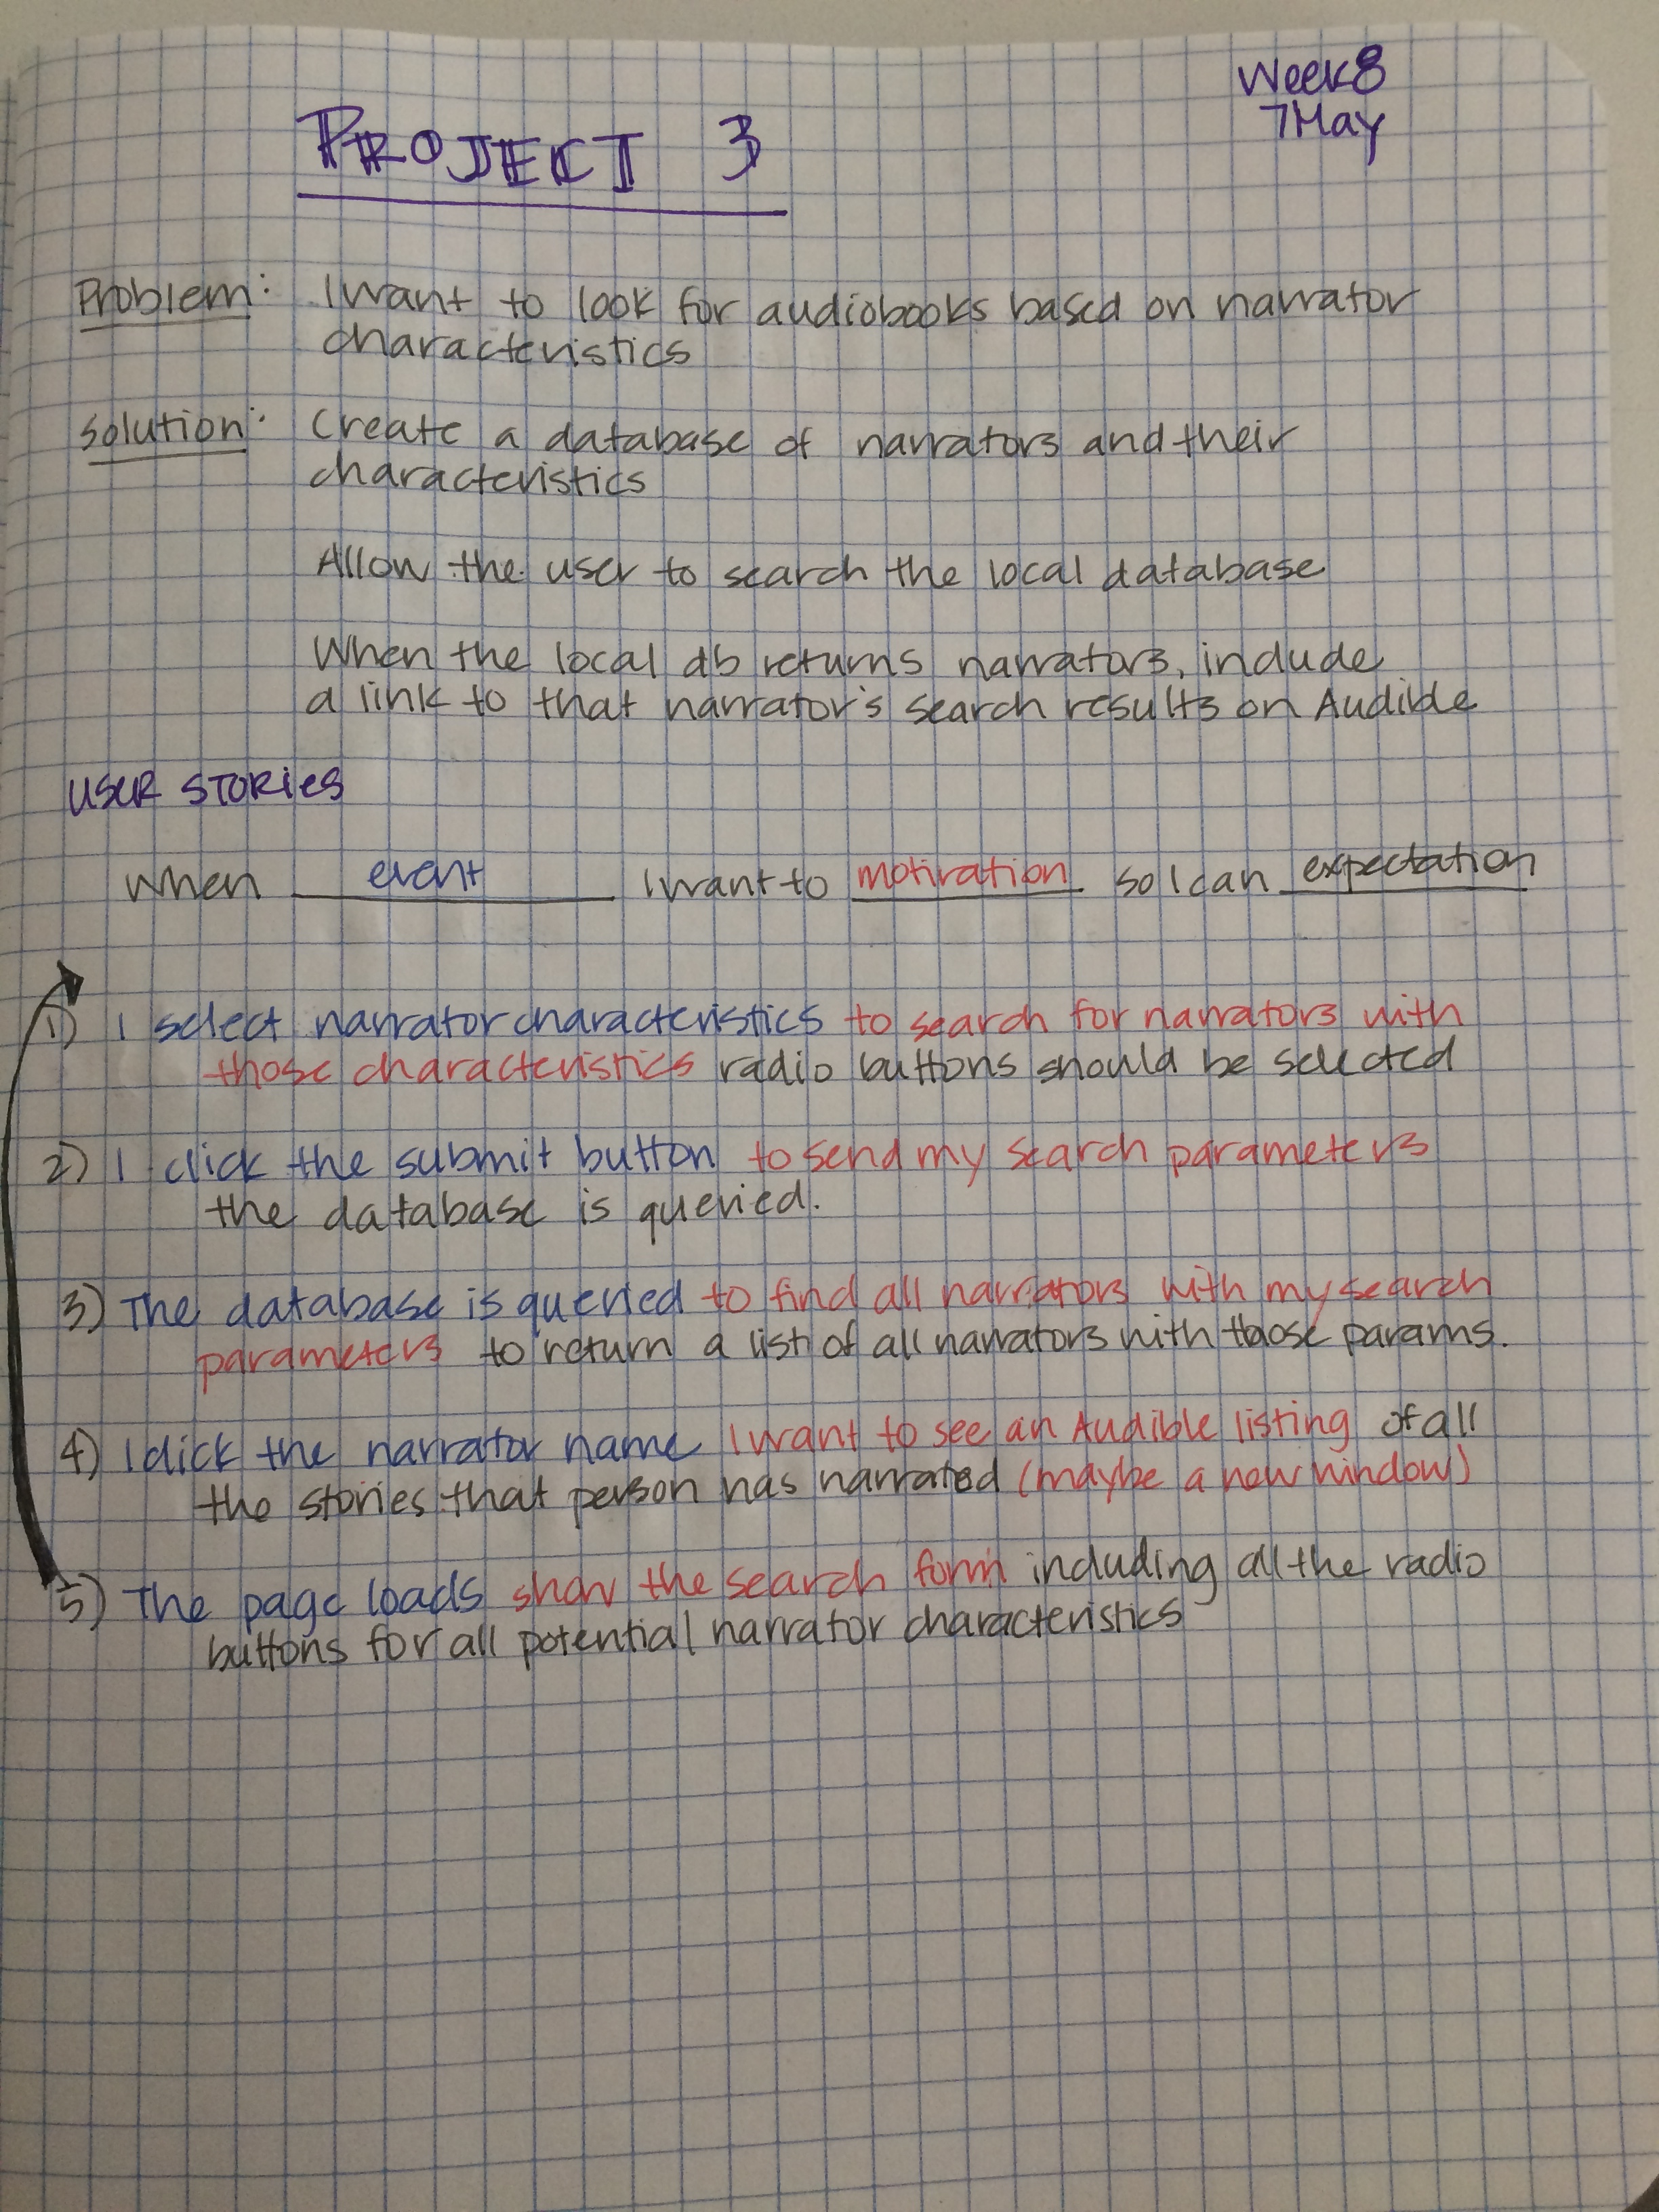 Week 8
7 May
PROJECT 3
Problem: I want to look for audiobooks based on narrator
characteristics
Solution: Create a database of narrators and their
characteristics
Allow the user to search the local database
When the local db returns narrators, include
a link to that narrator's search results on Audible
USER STORIES
When event I want to motivation so I can expectation
1) I select narrator characteristics to search for narrators with
those characteristics radio buttons should be selected
2) I click the submit button to send my search parameters
the database is queried.
3) The database is queried to find all narrators with my search
parameters to return a list of all narrators with those params.
4) I click the narrator name I want to see an Audible listing of all
the stories that person has narrated (maybe a new window)
5) The page loads show the search form including all the radio
buttons for all potential narrator characteristics